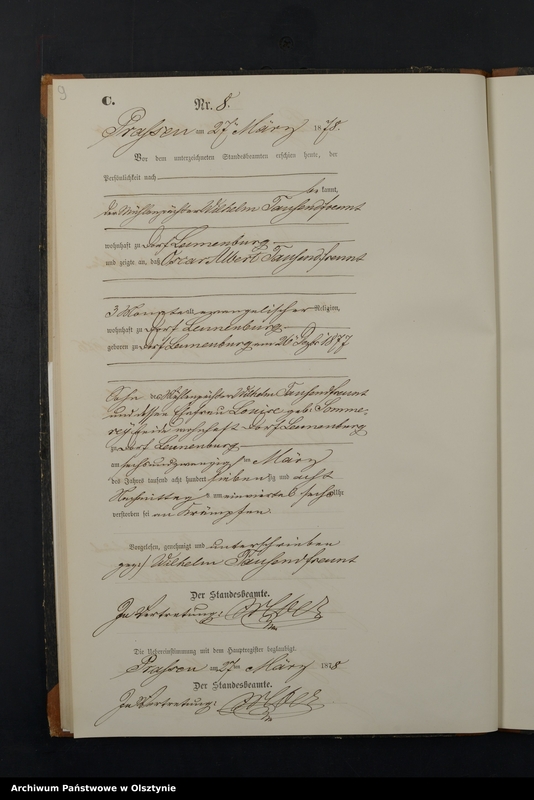 9
C.
Nr. 8.
Prassen am 27ten März 1878.
Vor dem unterzeichneten Standesbeamten erschien heute, der
Persönlichkeit nach
be kannt,
der Mühlenpächter Wilhelm Tausendfreunt
wohnhaft zu Dorf Leunenburg
und zeigte an, daß Oscar Albert Tausendfreunt
3 Monate alt evangelischer Religion,
wohnhaft zu Dorf Leunenburg
geboren zu Dorf Leunenburg am 26 Dezbr 1877
Sohn des Mühlenpächters Wilhelm Tausendfreunt
und dessen Ehefrau Louise geb: Somme-
rey beide wohnhaft Dorf Leunenburg
zu Dorf Leunenburg
am sechsundzwanzigsten März
des Jahres tausend acht hundert siebenzig und acht
Nachmittag um einviertel sechs Uhr
verstorben sei an Krämpfen.
Vorgelesen, genehmigt und unterschrieben
gez:/ Wilhelm Tausendfreunt
Der Standesbeamte.
In Vertretung:
Die Uebereinstimmung mit dem Hauptregister beglaubigt.
Prassen am 27ten März 1878
Der Standesbeamte.
In Vertretung:
Archiwum Państwowe w Olsztynie